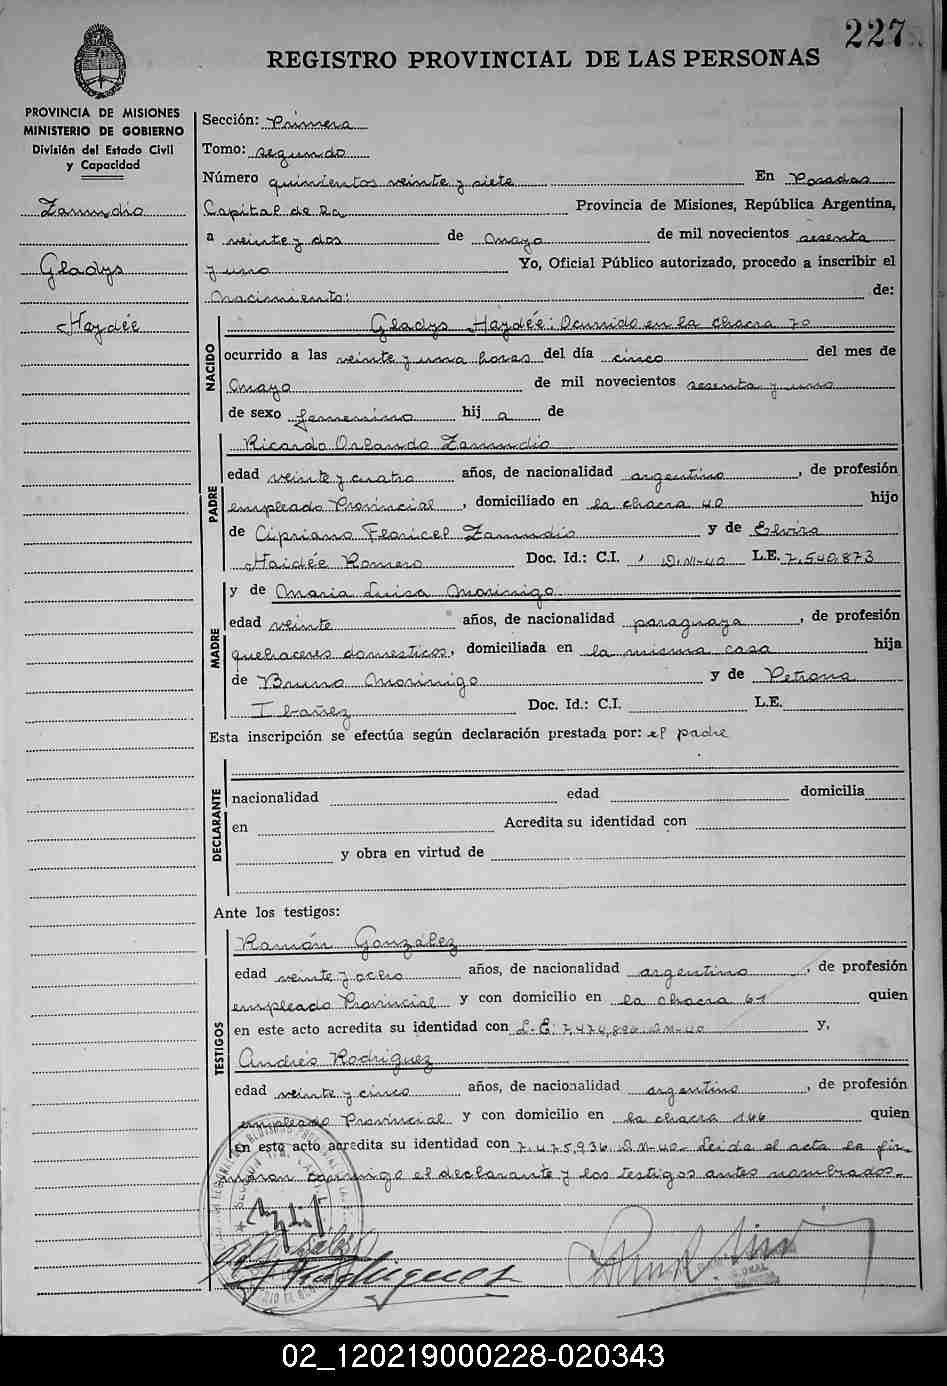 227
REGISTRO PROVINCIAL DE LAS PERSONAS
PROVINCIA DE MISIONES
MINISTERIO DE GOBIERNO
División del Estado Civil
y Capacidad
Zamudio
Gladys
Haydée
Sección: Primera
Tomo: segundo
Número quinientos veinte y siete En Posadas
Capital de la Provincia de Misiones, República Argentina,
a veinte y dos de Mayo de mil novecientos sesenta
y uno Yo, Oficial Público autorizado, procedo a inscribir el
Nacimiento: de:
NACIDO
Gladys Haydée: Ocurrido en la chacra 70
ocurrido a las veinte y una horas del día cinco del mes de
Mayo de mil novecientos sesenta y uno
de sexo femenino hij a de
PADRE
Ricardo Orlando Zamudio
edad veinte y cuatro años, de nacionalidad argentino, de profesión
empleado Provincial, domiciliado en la chacra 40 hijo
de Cipriano Floricel Zamudio y de Elvira
Haidée Romero Doc. Id.: C.I. D.M-40 L.E. 7.540.873
MADRE
y de Maria Luisa Morinigo
edad veinte años, de nacionalidad paraguaya, de profesión
quehaceres domesticos, domiciliada en la misma casa hija
de Bruno Morinigo y de Petrona
Ibañez Doc. Id.: C.I. L.E.
Esta inscripción se efectúa según declaración prestada por: el padre
DECLARANTE
nacionalidad edad domicilia
en Acredita su identidad con
y obra en virtud de
Ante los testigos:
TESTIGOS
Ramón González
edad veinte y ocho años, de nacionalidad argentino, de profesión
empleado Provincial y con domicilio en la chacra 61 quien
en este acto acredita su identidad con L.E: D.M-40 y,
Andrés Rodriguez
edad veinte y cinco años, de nacionalidad argentino, de profesión
empleado Provincial y con domicilio en la chacra 146 quien
en este acto acredita su identidad con 7.475.936 D.M-40- Leida el acta la fir-
maron conmigo el declarante y los testigos antes nombrados.-
Rodriguez
02_120219000228-020343